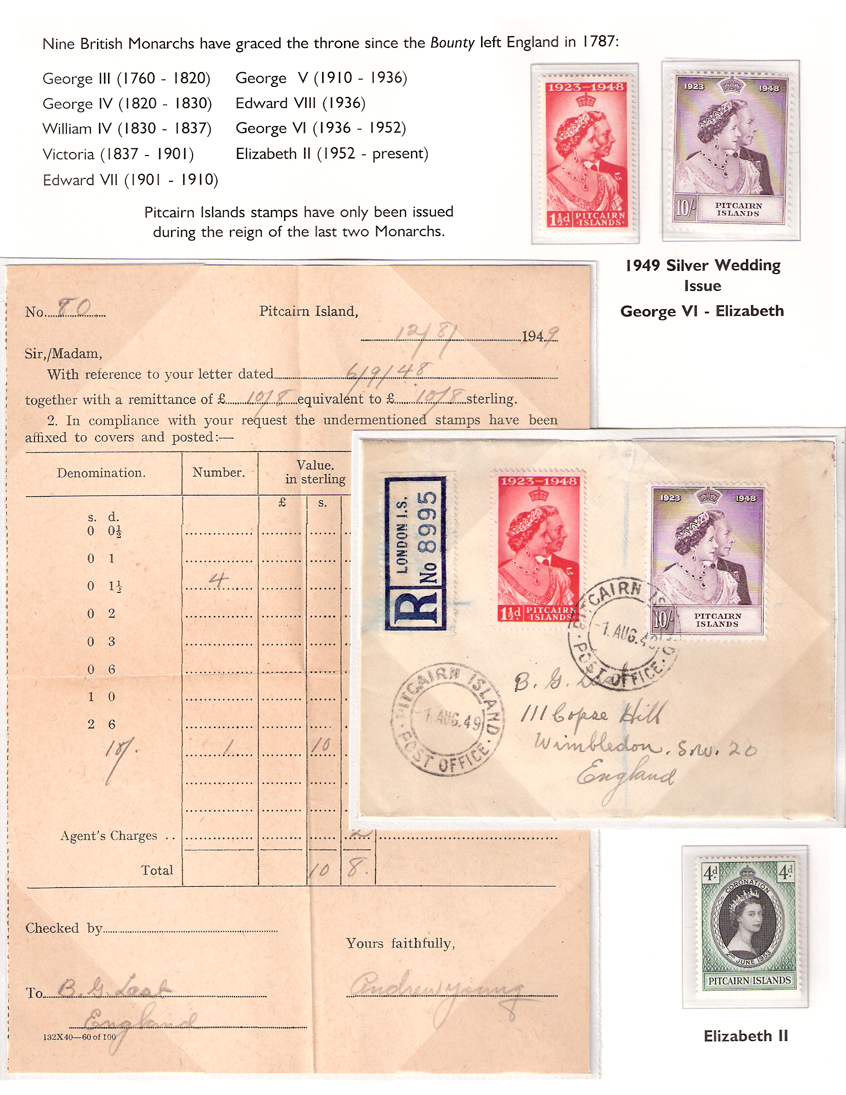 Nine British Monarchs have graced the throne since the Bounty left England in 1787:
George III (1760 - 1820)
George IV (1820 - 1830)
William IV (1830 - 1837)
Victoria (1837 - 1901)
Edward VII (1901 - 1910)
George V (1910 - 1936)
Edward VIII (1936)
George VI (1936 - 1952)
Elizabeth II (1952 - present)
Pitcairn Islands stamps have only been issued
during the reign of the last two Monarchs.
1923-1948
1½d
PITCAIRN
ISLANDS
1923 1948
10/-
PITCAIRN
ISLANDS
1949 Silver Wedding
Issue
George VI - Elizabeth
No. 80 Pitcairn Island,
12/8/ 1949
Sir,/Madam,
With reference to your letter dated 6/9/48
together with a remittance of £ 10/8 equivalent to £ 10/8 sterling.
2. In compliance with your request the undermentioned stamps have been
affixed to covers and posted:—
Denomination. Number. Value.
in sterling
£ s.
s. d.
0 0½
0 1
0 1½ 4
0 2
0 3
0 6
1 0
2 6
10/- 1 10
Agent's Charges ..
Total 10 8.
Checked by
Yours faithfully,
To B. G. Last
Andrew Young
England
132X40—60 of 100
R
LONDON I.S.
No 8995
1923-1948
1½d
PITCAIRN
ISLANDS
1923 1948
10/-
PITCAIRN
ISLANDS
PITCAIRN ISLAND
-1.AUG.49
POST OFFICE
PITCAIRN ISLAND
-1.AUG.49
POST OFFICE
B. G.
111 Copse Hill
Wimbledon. S.W. 20
England
4d. 4d.
CORONATION
2ND JUNE 1953
PITCAIRN ISLANDS
Elizabeth II